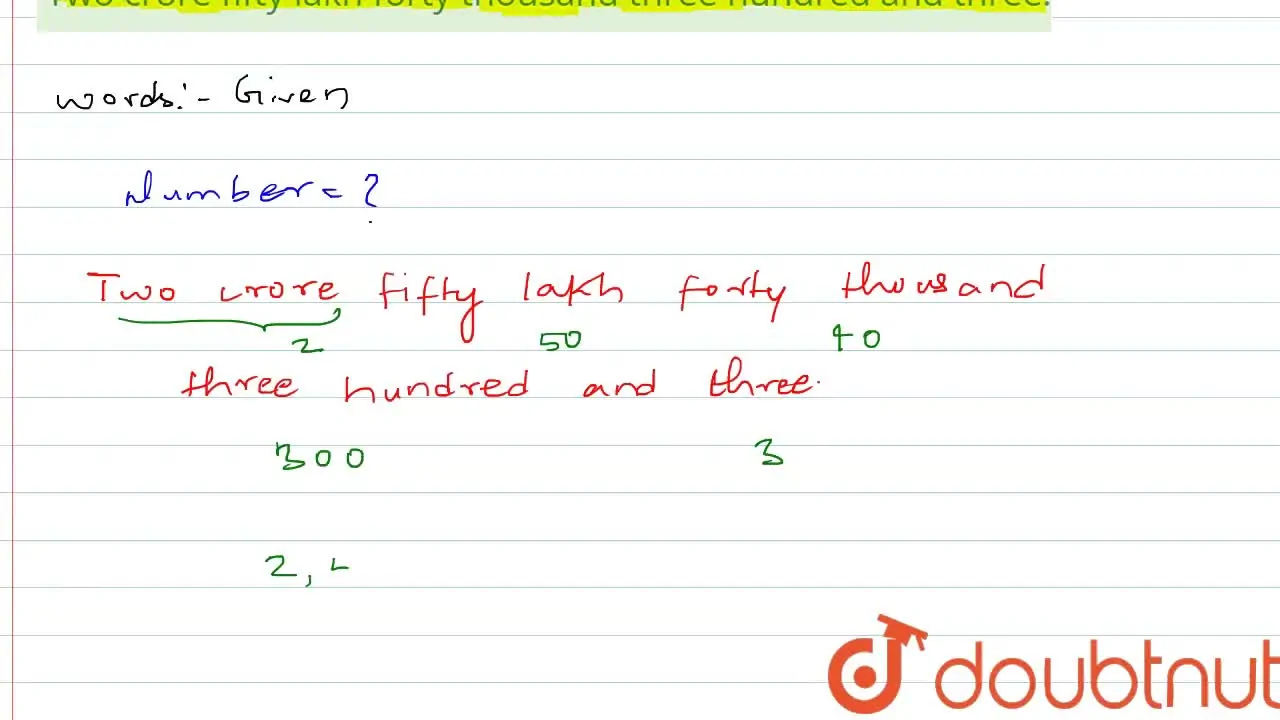 Two crore fifty lakh forty thousand three hundred and three.
words:- Given
Number = ?
Two crore fifty lakh forty thousand
2 50 40
three hundred and three.
300 3
2,
doubtnut